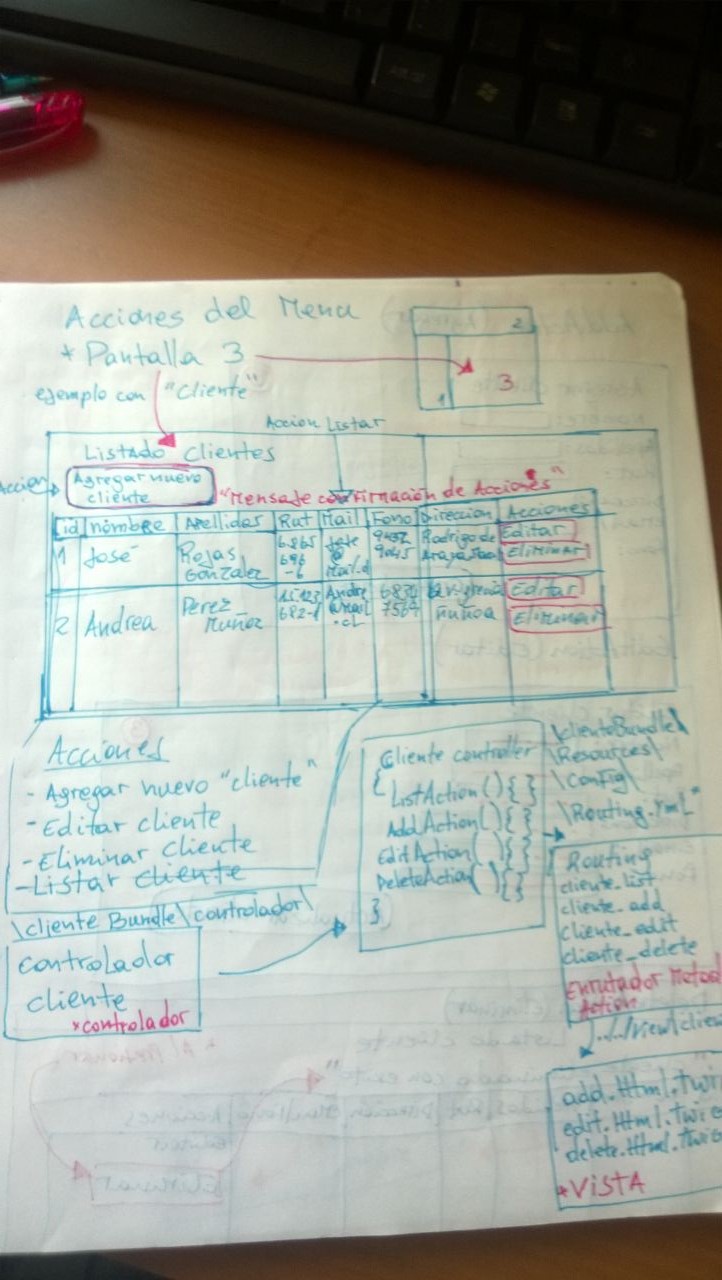 Acciones del Menu
* Pantalla 3
2
1
3
ejemplo con "Cliente"
Accion Listar
Listado Clientes
Accion
Agregar nuevo
cliente
"Mensaje confirmación de Acciones"
id nombre Apellidos Rut Mail Fono Direccion Acciones
1 José
Rojas
Gonzalez
696
-6
Jose
@
9432
9045
Rodrigo de
Araya
Editar
Eliminar
2 Andrea
Perez
Muñoz
Andre
.cl
7564
ñuñoa
Editar
Eliminar
Acciones
- Agregar nuevo "cliente"
- Editar cliente
- Eliminar cliente
- Listar cliente
\cliente Bundle\controlador\
controlador
cliente
*controlador
Cliente controller
{
ListAction(){ }
AddAction( ){ }
EditAction( ){ }
DeleteAction( ){ }
}
\clienteBundle\
\Resources\
\Config\
\Routing.yml"
Routing
cliente_list
cliente_add
cliente_edit
cliente_delete
Enrutador
Action
../../View/clien
add.Html.twi
edit.Html.twig
delete.Html.twig
*VISTA